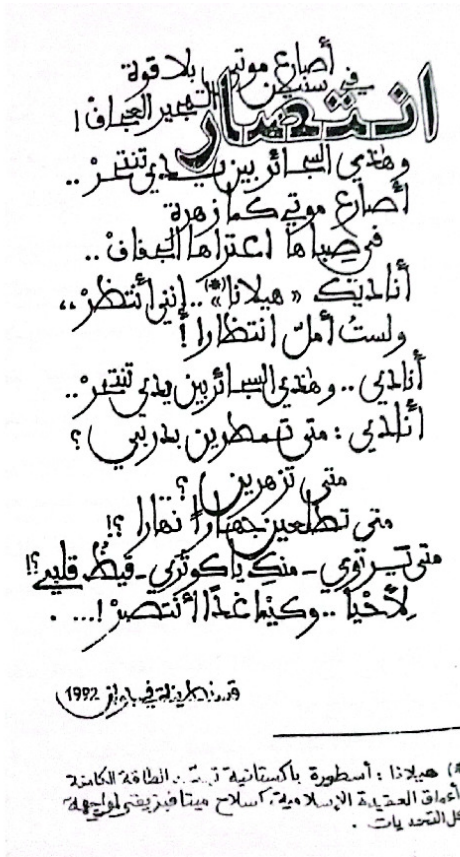 انتصار
أصارع موتي بلا قوة
في سنين العجاف !
وهذي السجائر بين يدي تنتحرْ ..
أصارع موتي كما زهرة
في صِباها اعتراها الجفافْ ..
أناديك « هيلانا (*) » .. إنني أنتظرْ ،،
ولستُ أملّ انتظارا !
أنادي .. وهذي السجائر بين يدي تنتحرْ ..
أنادي : متى تمطرين بدربي ؟
متى تزهرين ؟
متى تطلعين جهاراً نهارا ؟!
متى ترتوي - منكِ يا كوثري - قيظُ قلبي ؟!
لِأَحْيَا .. وكيْما غدًا أنتصرْ !... .
في 1992
(* هيلانا : أسطورة باكستانية الطاقة الكامنة
أعماق العقيدة الإسلامية، كسلاح ميتافيزيقي لمواجهة
كل التحديات .